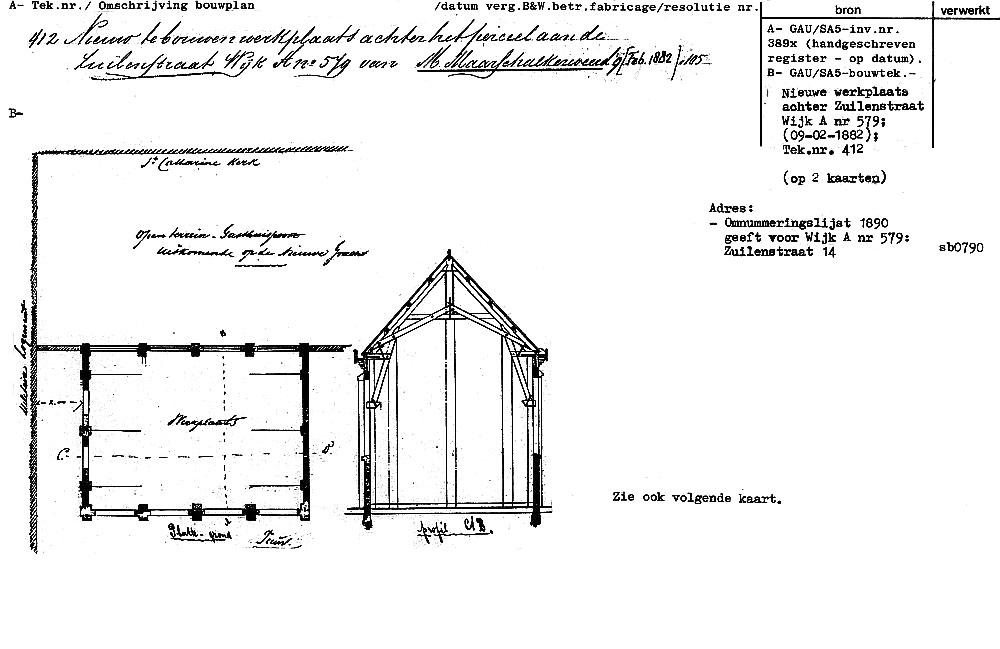 A- Tek.nr./ Omschrijving bouwplan /datum verg.B&W.betr.fabricage/resolutie nr.
bron verwerkt
412 Nieuw te bouwen werkplaats achter het perceel aan de
Zuilenstraat Wijk A no 579 van M. Maarschalkerweerd 9 Feb. 1882 105
A- GAU/SA5-inv.nr.
389x (handgeschreven
register - op datum).
B- GAU/SA5-bouwtek.-
Nieuwe werkplaats
achter Zuilenstraat
Wijk A nr 579;
(09-02-1882);
Tek.nr. 412
(op 2 kaarten)
B-
St Catharine Kerk
Open terrein - Gasthuispoort
uitkomende op de Nieuwe Gracht
Adres:
- Omnummeringslijst 1890
geeft voor Wijk A nr 579:
Zuilenstraat 14
sb0790
Militair Logement
Werkplaats
C
Platte-grond
Tuin
profil
Zie ook volgende kaart.